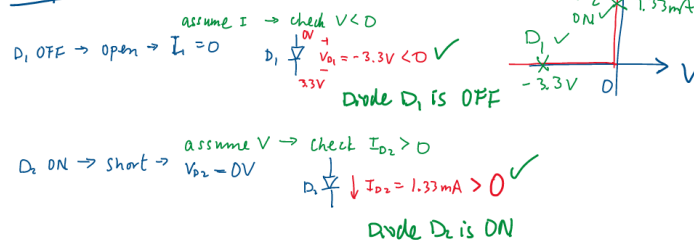 assume I → check V<0
D₁ OFF → open → I₁ = 0
D₁
0V
+
V_D1 = -3.3V < 0 ✓
-
3.3V
Diode D₁ is OFF
ON ✓
1.33mA
D₁ ✓
-3.3V
0
V
assume V → check I_D2 > 0
D₂ ON → short → V_D2 = 0V
D₁
↓ I_D2 = 1.33mA > 0 ✓
Diode D₂ is ON